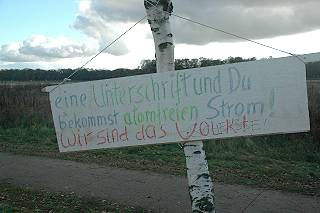 eine Unterschrift und Du
bekommst atomfreien Strom!
Wir sind das Volk